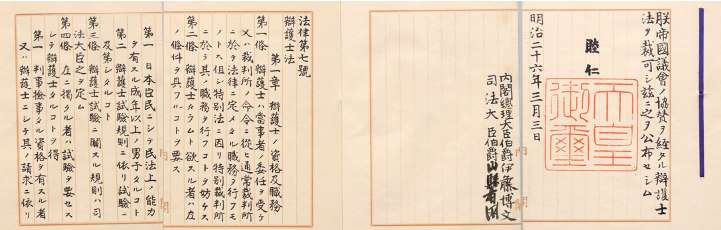 朕帝國議會ノ協賛ヲ經タル辯護士
法ヲ裁可シ茲ニ之ヲ公布セシム
睦仁
天皇御璽
明治二十六年三月三日
内閣總理大臣伯爵伊藤博文
司法大臣伯爵山縣有朋
法律第七號
辯護士法
第一章 辯護士ノ資格及職務
第一條 辯護士ハ當事者ノ委任ヲ受ケ
又ハ裁判所ノ命令ニ從ヒ通常裁判所
ニ於テ法律ニ定メタル職務ヲ行フモ
ノトス但シ特別法ニ因リ特別裁判所
ニ於テ其ノ職務ヲ行フコトヲ妨ケス
第二條 辯護士タラムト欲スル者ハ左
ノ條件ヲ具フルコトヲ要ス
第一 日本臣民ニシテ民法上ノ能力
ヲ有スル成年以上ノ男子タルコト
第二 辯護士試驗規則ニ依リ試驗ニ
及第シタルコト
第三條 辯護士試驗ニ關スル規則ハ司
法大臣之ヲ定ム
第四條 左ニ掲クル者ハ試驗ヲ要セス
シテ辯護士タルコトヲ得
第一 判事檢事タル資格ヲ有スル者
又ハ辯護士ニシテ其ノ請求ニ依リ